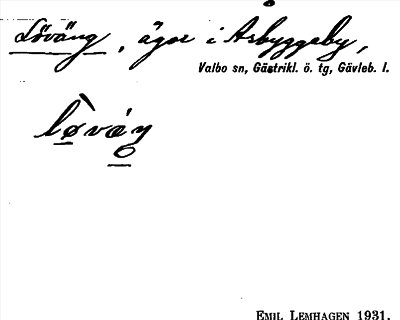 Löväng, ägor i Åsbyggeby,
Valbo sn, Gästrikl. ö. tg, Gävleb. l.
EMIL LEMHAGEN 1931.